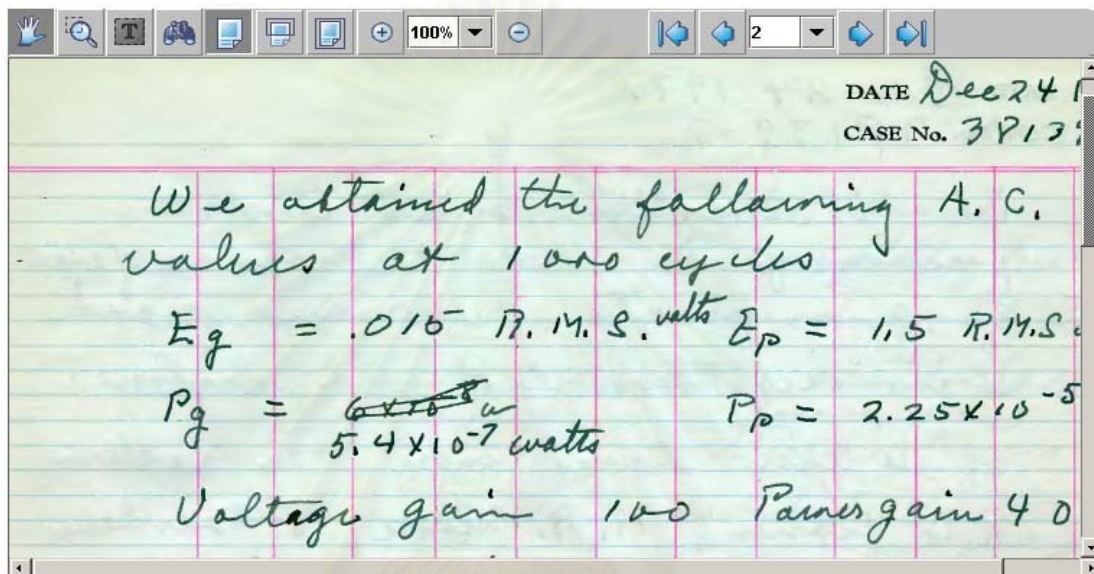 T 100% 2
DATE Dec 24 1
CASE No. 3813
We obtained the following A. C.
values at 1000 cycles
Eg = .015 R. M. S. volts Ep = 1.5 R.M.S.
Pg = 6 x 10-8 w Pp = 2.25 x 10-5
5.4 x 10-7 watts
Voltage gain 100 Power gain 40